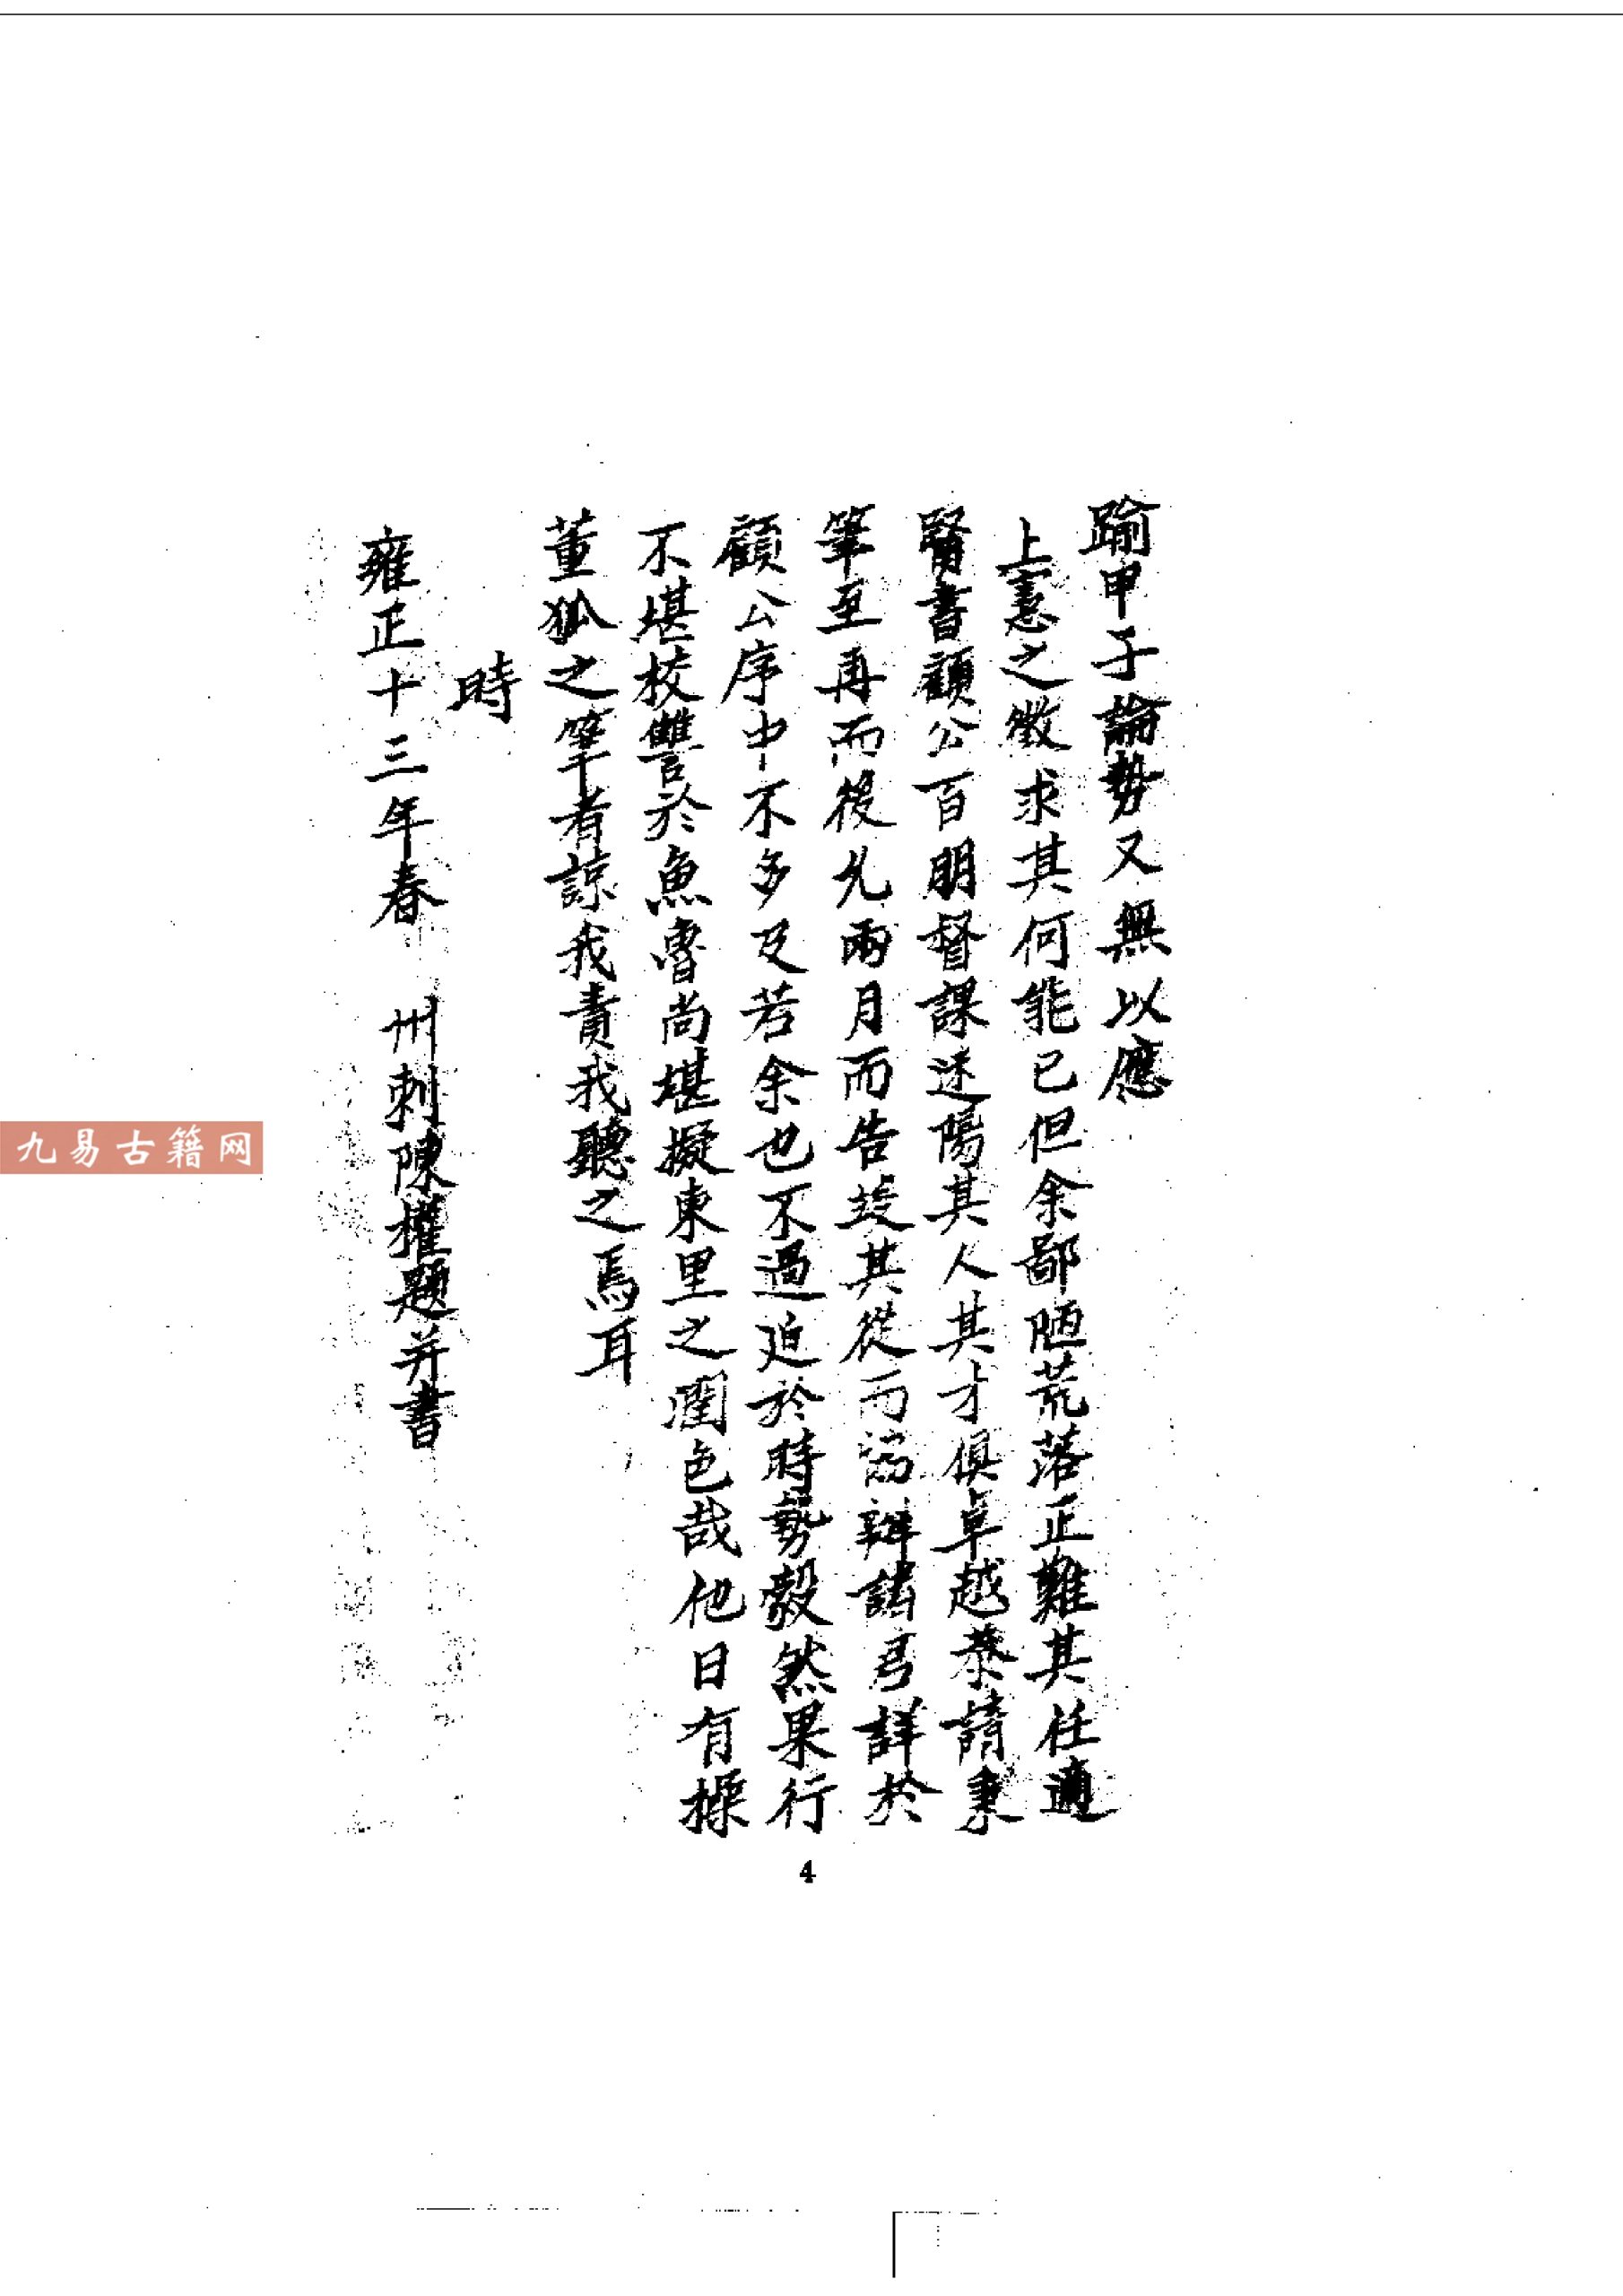 踰甲子論勢又無以應
上憲之徵求其何能已但余鄙陋荒落正難其任適
賢書顧公百朋督課迷陽其人其才俱卓越恭請秉
筆至再而後允兩月而告竣其從而辨諸詳於
顧公序中不多及若余也不過迫於時勢毅然果行
不堪校讐於魚魯尚堪擬東里之潤色哉他日有操
董狐之筆者諒我責我聽之焉耳
時
雍正十三年春 州刺陳權題并書
4
九易古籍网